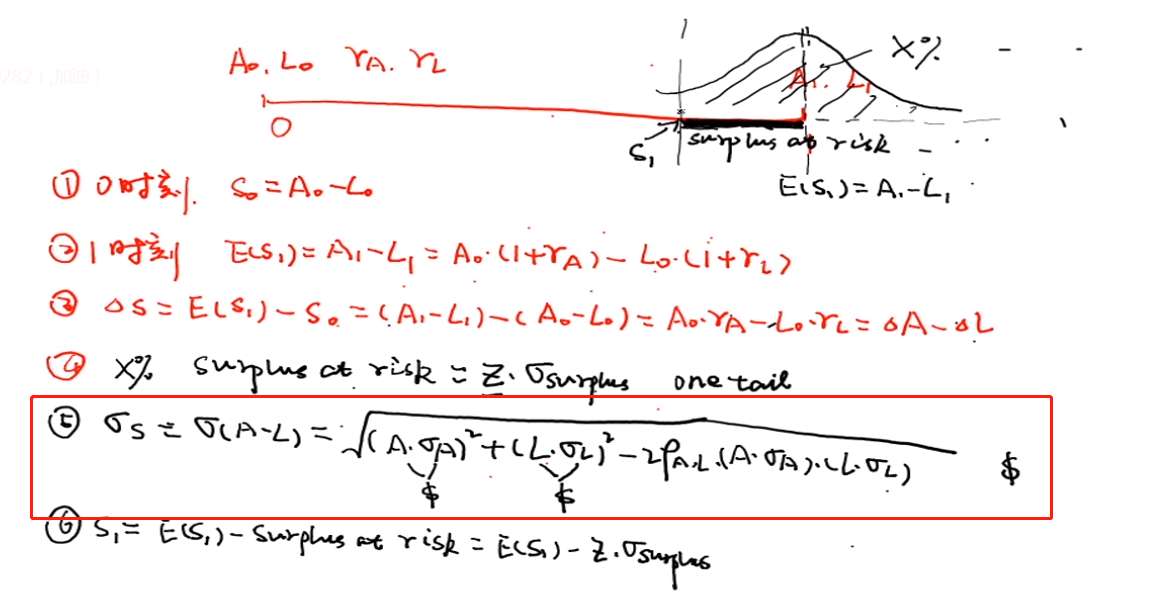 X%
A₀. L₀ r_A. r_L
A₁. L₁
0
S₁
surplus at risk
E(S₁) = A₁-L₁
① 0时刻. S₀ = A₀-L₀
② 1时刻 E(S₁) = A₁-L₁ = A₀·(1+r_A) - L₀·(1+r_L)
③ ΔS = E(S₁) - S₀ = (A₁-L₁)-(A₀-L₀) = A₀·r_A-L₀·r_L = ΔA-ΔL
④ X% surplus at risk = Z·σ_surplus one tail
⑤ σ_S = σ(A-L) = √((A·σ_A)²+(L·σ_L)²-2ρ_A,L·(A·σ_A)·(L·σ_L)) $
$ $
⑥ S₁ = E(S₁) - surplus at risk = E(S₁) - Z·σ_surplus